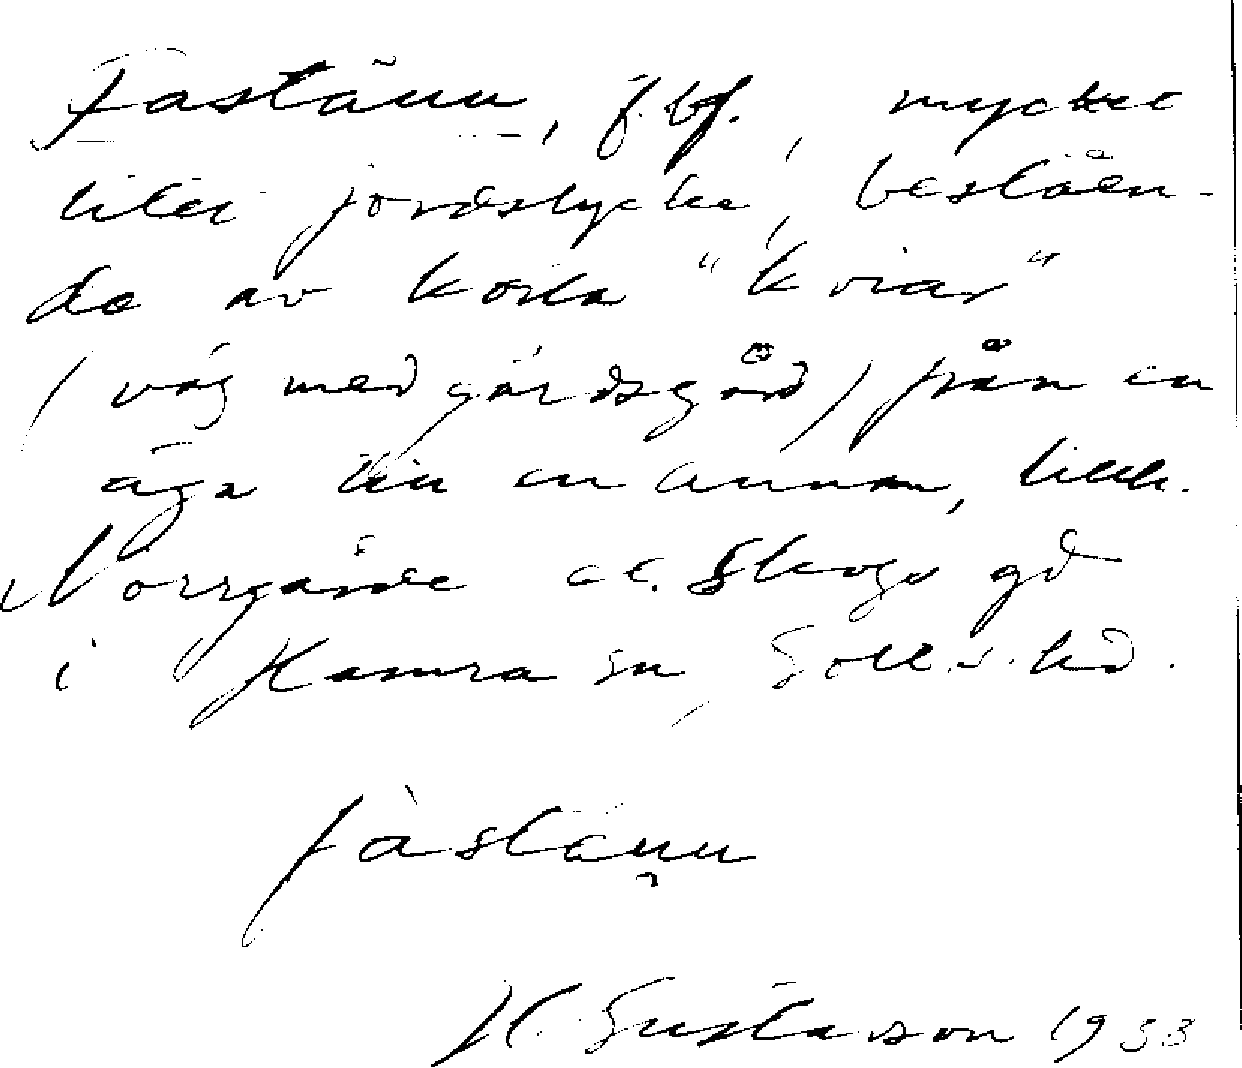 Fastänu, f. bf., mycket
litet jordstycke, beståen-
de av korta "kviar"
(väg med gärdsgård) från en
äga till en annan, tillh.
Norrgårde el. Skogs gd
i Hamra sn, Sott.s. hd.
fàstänu
H. Gustavson 1933